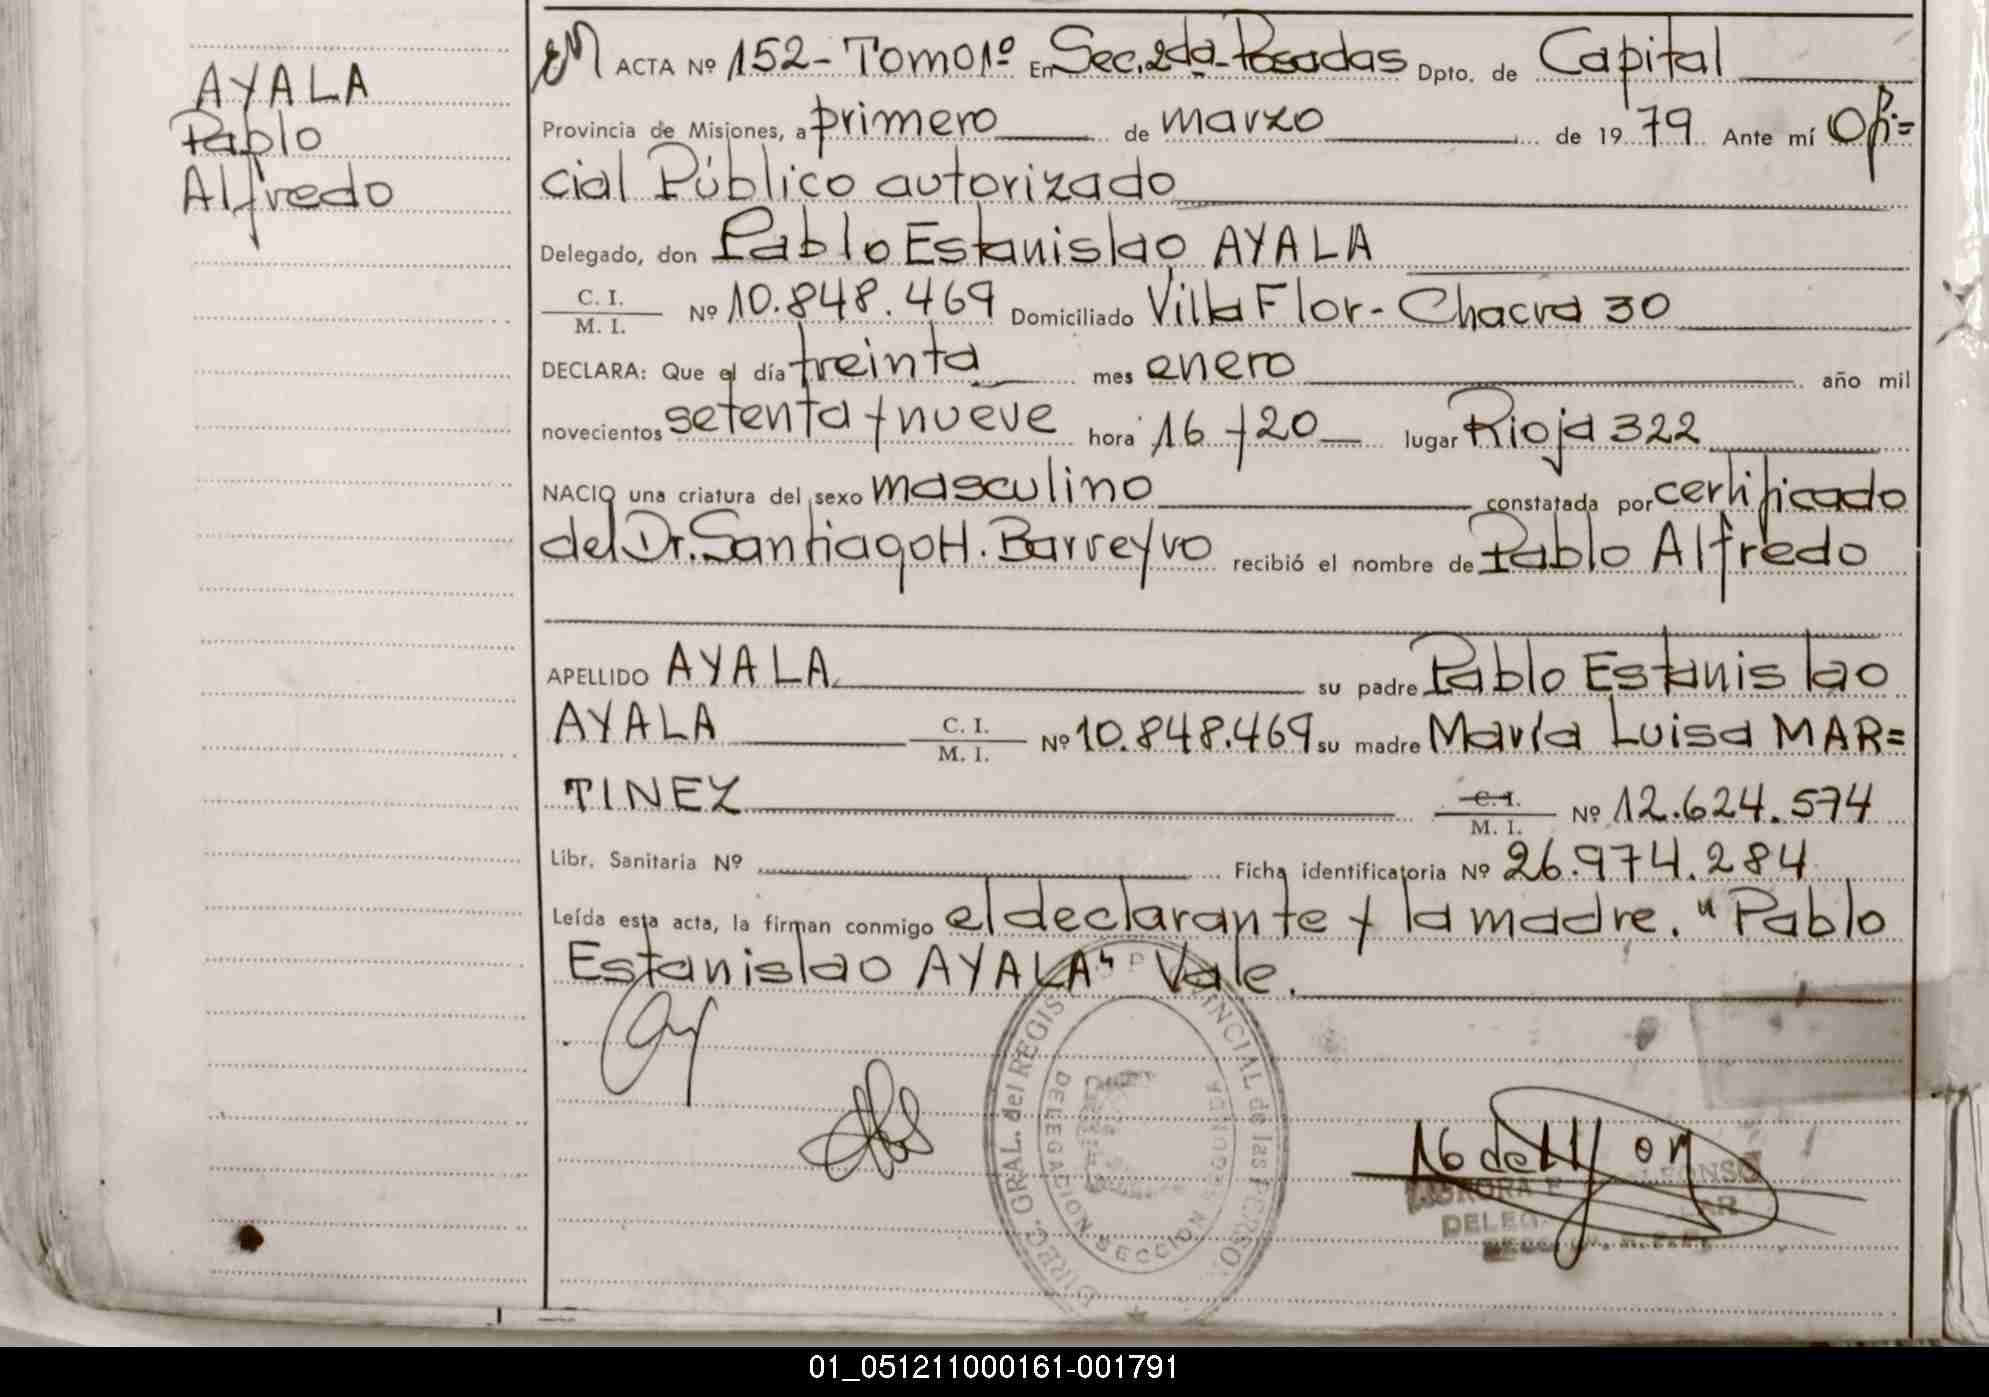 AYALA
Pablo
Alfredo
ACTA Nº 152 - Tomo 1º En Sec. 2da - Posadas Dpto. de Capital
Provincia de Misiones, a primero de marzo de 1979 Ante mí Ofi=
cial Público autorizado
Delegado, don Pablo Estanislao AYALA
C. I.
M. I. Nº 10.848.469 Domiciliado Villa Flor - Chacra 30
DECLARA: Que el día treinta mes enero año mil
novecientos setenta y nueve hora 16 y 20 lugar Rioja 322
NACIO una criatura del sexo masculino constatada por certificado
del Dr. Santiago H. Barreyro recibió el nombre de Pablo Alfredo
APELLIDO AYALA su padre Pablo Estanislao
AYALA C. I.
M. I. Nº 10.848.469 su madre María Luisa MAR=
TINEZ C. I.
M. I. Nº 12.624.574
Libr. Sanitaria Nº Ficha identificatoria Nº 26.974.284
Leída esta acta, la firman conmigo el declarante y la madre. "Pablo
Estanislao AYALA" Vale.
DIREC. GRAL. del REGIS PROVINCIAL de las PERSO
DELEGACION SECCION POSADAS
01_051211000161-001791